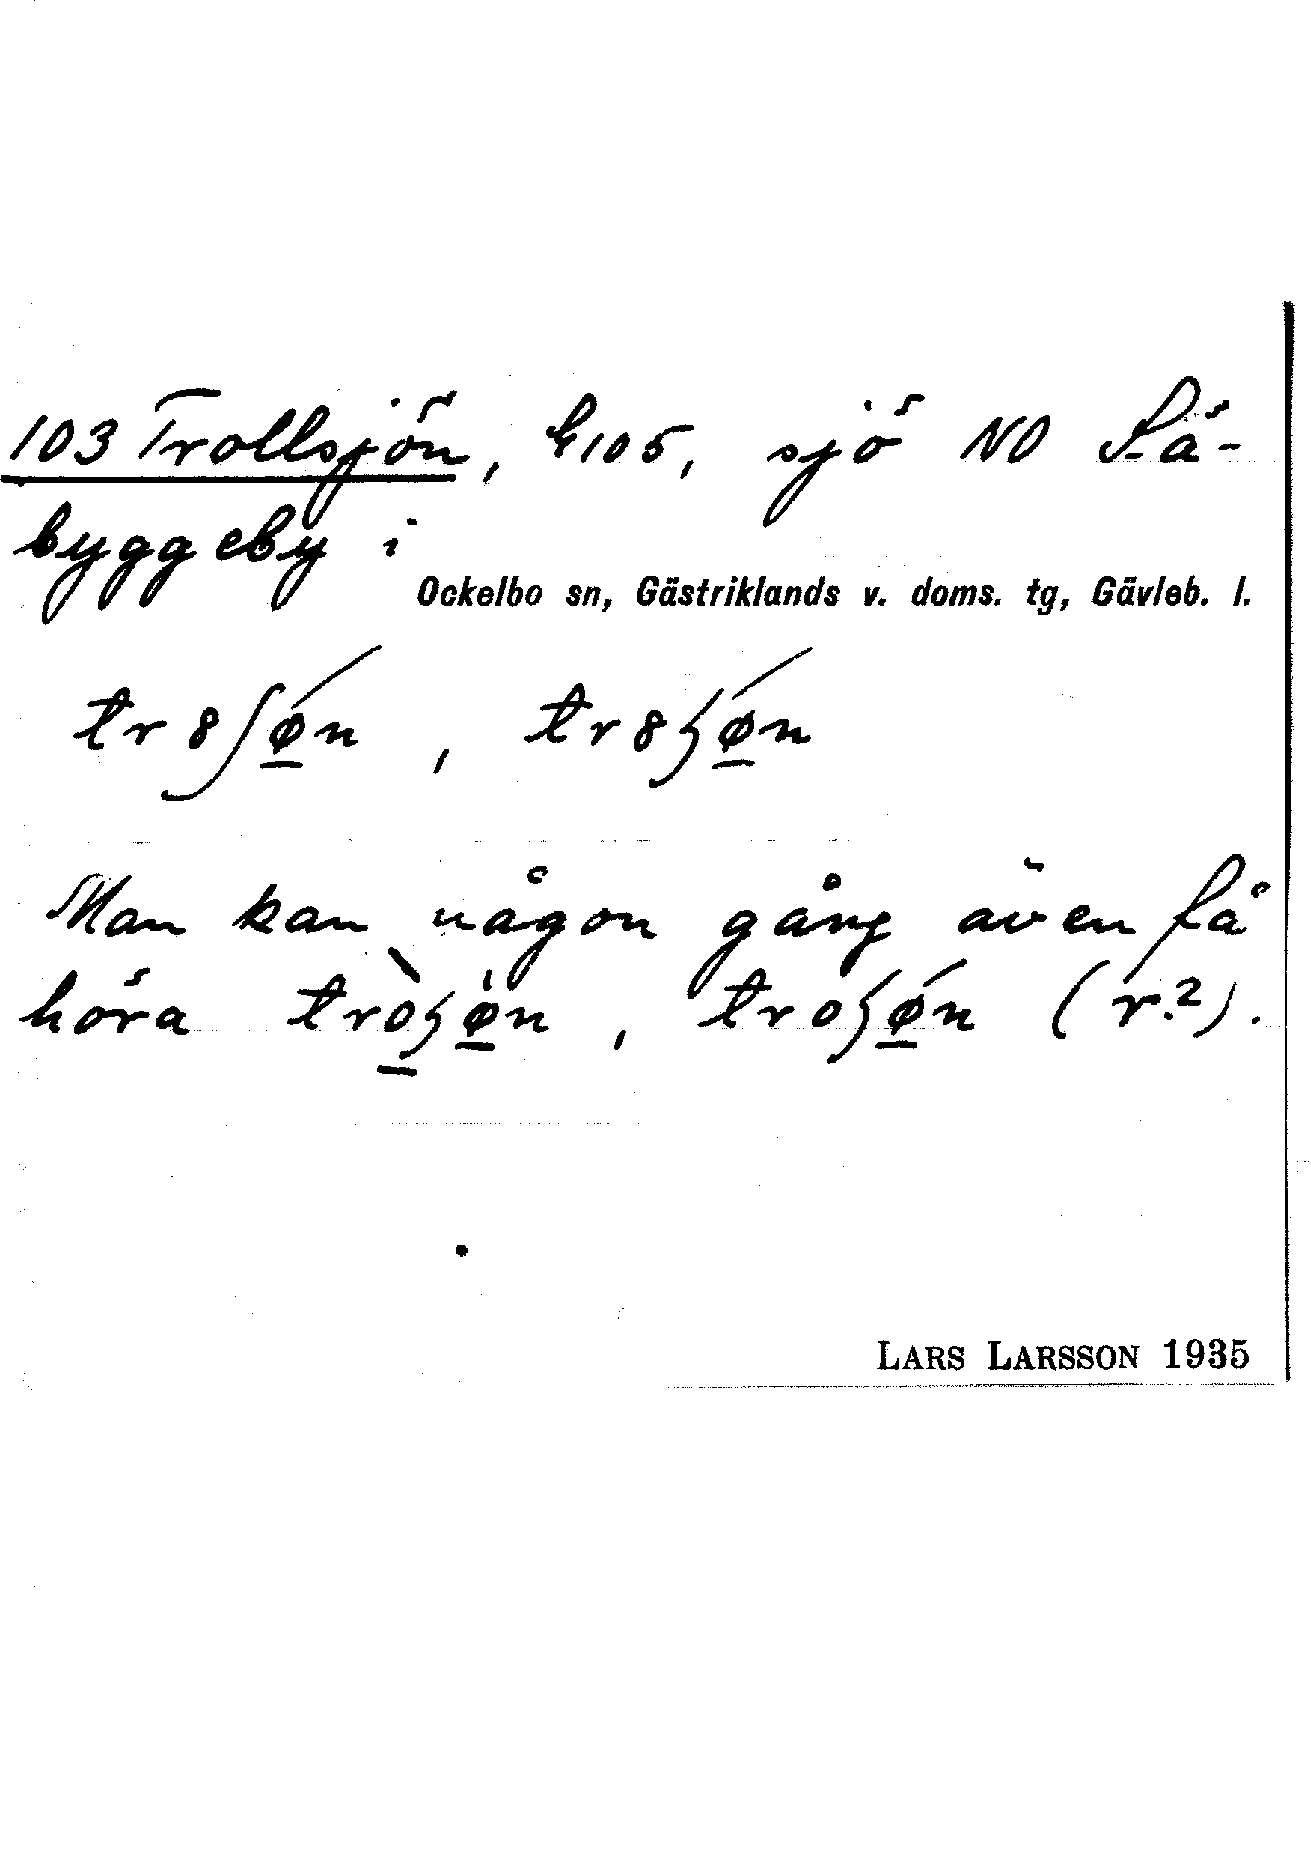 103 Trollsjön, h 105, sjö NO Få-
byggeby i
Ockelbo sn, Gästriklands v. doms. tg, Gävleb. l.
tr8ʃøn, tr8ʒøn
Man kan någon gång även få
höra tròʒøn, troʒøn (r.?).
LARS LARSSON 1935